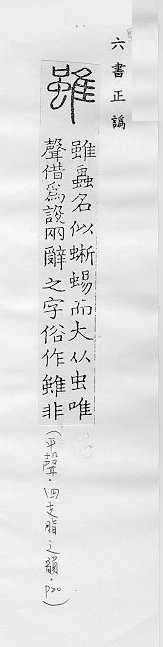 六書正譌
雖
雖蟲名似蜥蜴而大从虫唯
聲借爲設兩辭之字俗作雖非
(平聲・四支脂之韻・P20)